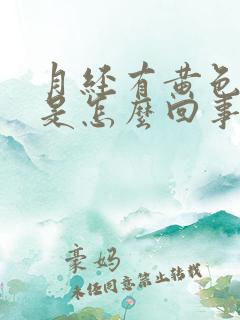 月经有黄色
是怎麽回事
豪妈
未经同意禁止转载